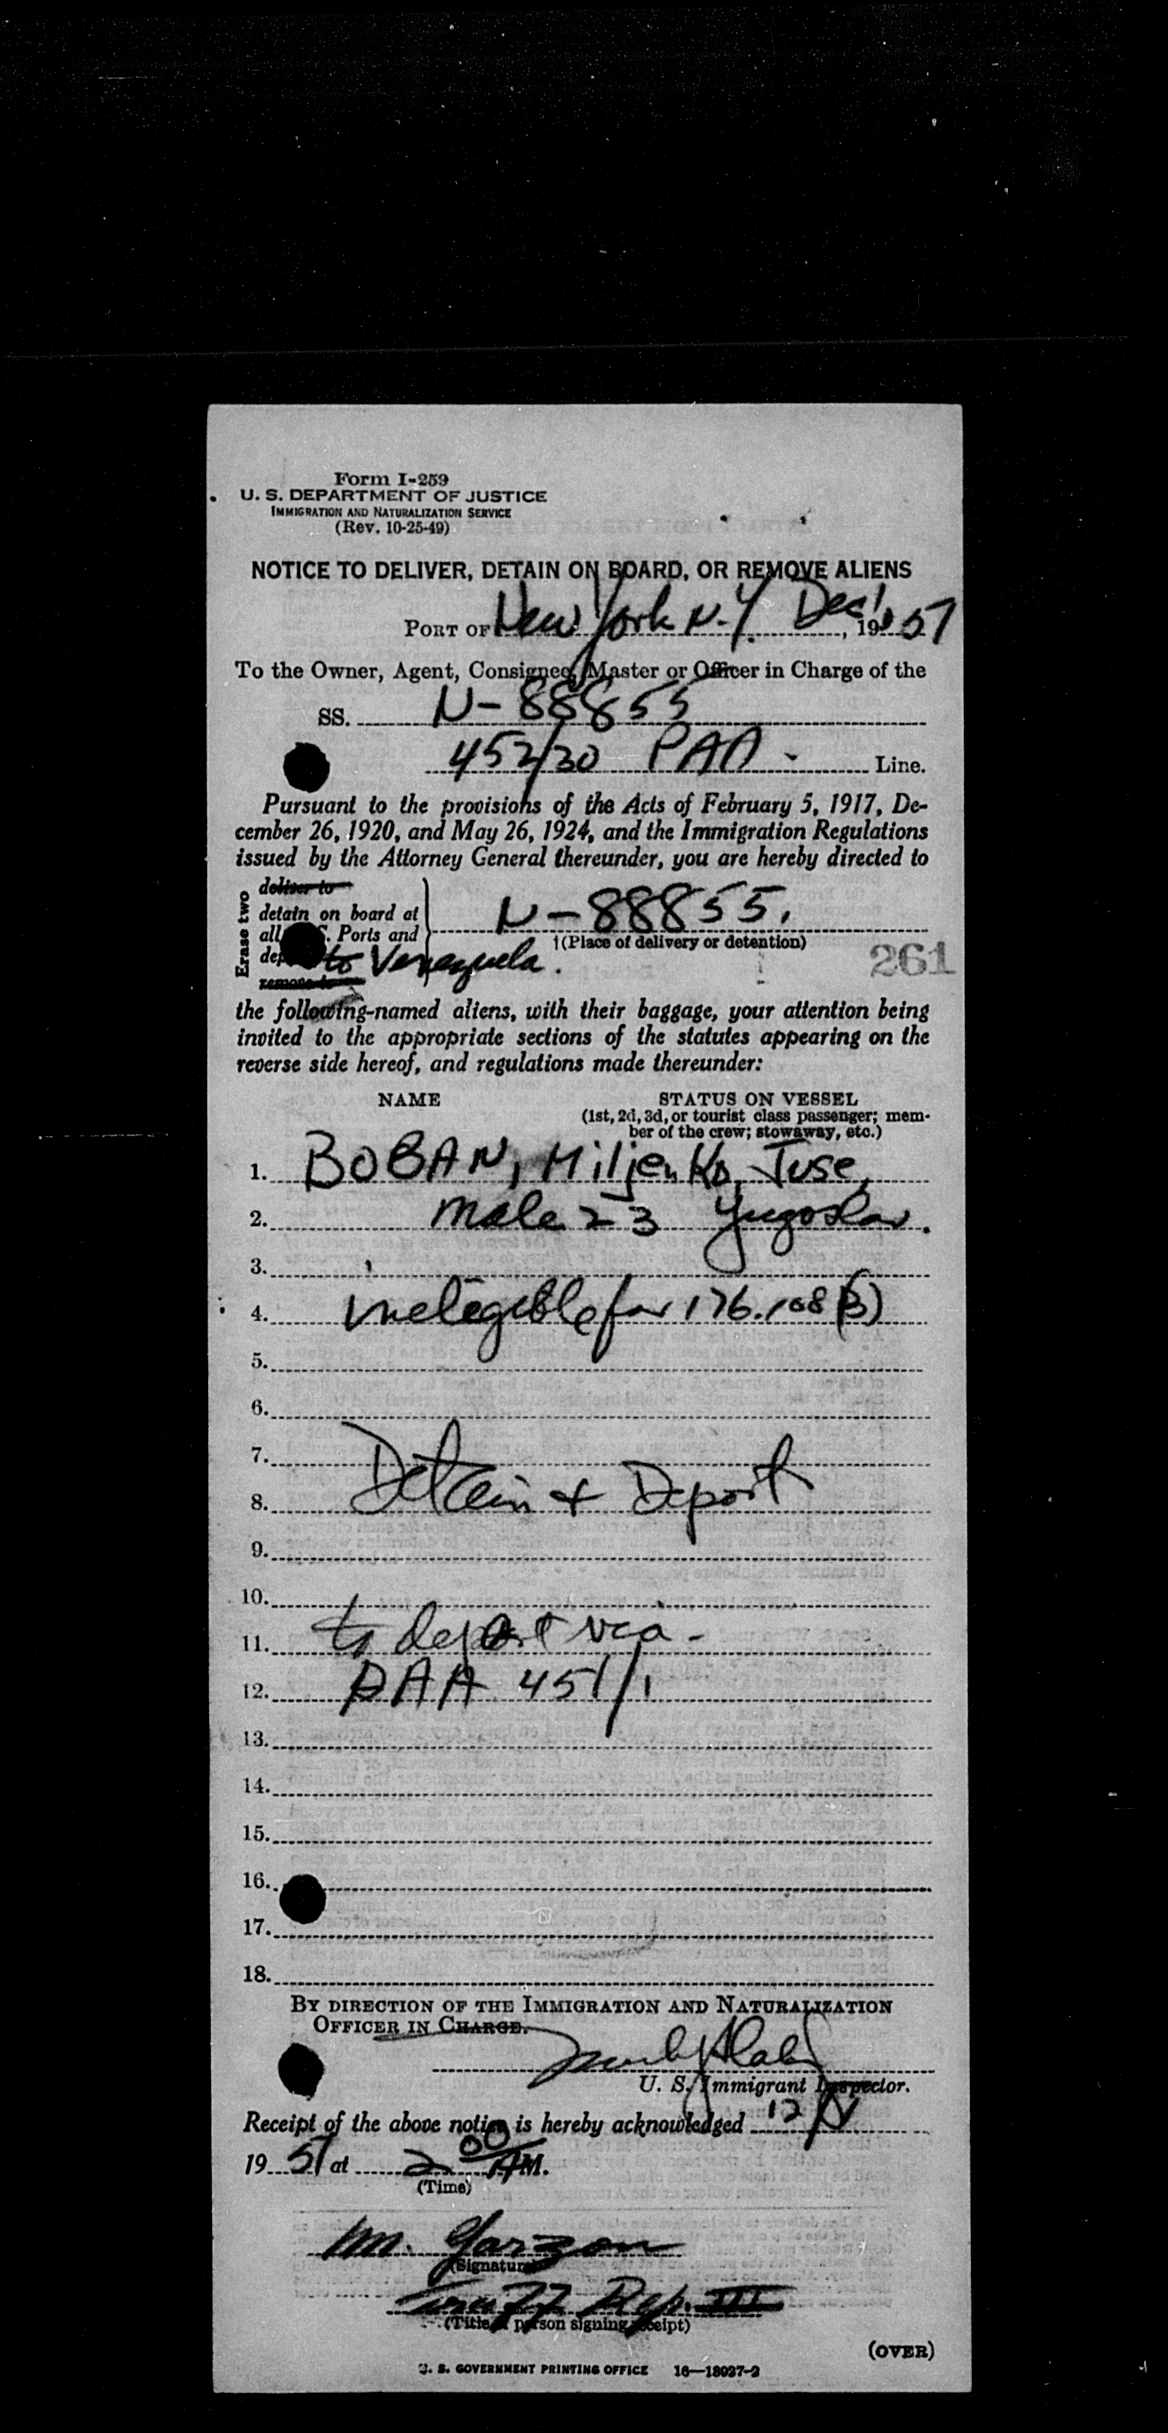 Form I-259
U. S. DEPARTMENT OF JUSTICE
IMMIGRATION AND NATURALIZATION SERVICE
(Rev. 10-25-49)
NOTICE TO DELIVER, DETAIN ON BOARD, OR REMOVE ALIENS
PORT OF New York N.Y. Dec 1, 1951
To the Owner, Agent, Consignee, Master or Officer in Charge of the
SS. N-88855
452/30 PAA - Line.
Pursuant to the provisions of the Acts of February 5, 1917, De-
cember 26, 1920, and May 26, 1924, and the Immigration Regulations
issued by the Attorney General thereunder, you are hereby directed to
Erase two
deliver to
detain on board at
all S. Ports and
N-88855.
†(Place of delivery or detention)
dep to Venezuela.
remove to
261
the following-named aliens, with their baggage, your attention being
invited to the appropriate sections of the statutes appearing on the
reverse side hereof, and regulations made thereunder:
NAME STATUS ON VESSEL
(1st, 2d, 3d, or tourist class passenger; mem-
ber of the crew; stowaway, etc.)
1. BOBAN, Miljenko, Juse,
2. male 23 Yugoslav.
3.
4. inelegible for 176.108(B)
5.
6.
7.
8. Detain + Deport
9.
10.
11. to depart via -
12. PAA 451/1
13.
14.
15.
16.
17.
18.
BY DIRECTION OF THE IMMIGRATION AND NATURALIZATION
OFFICER IN CHARGE.
U. S. Immigrant Inspector.
Receipt of the above notice is hereby acknowledged 12/1
19 51 at 2 00 AM.
(Time)
M. Garzon
(Signature)
Traff Rep. III
(Title of person signing receipt)
(OVER)
U. S. GOVERNMENT PRINTING OFFICE 16—18027-2